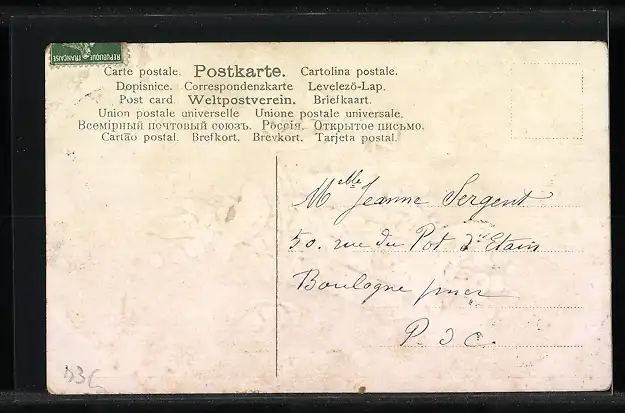 REPUBLIQUE FRANÇAISE
Carte postale. Postkarte. Cartolina postale.
Dopisnice. Correspondenzkarte Levelező-Lap.
Post card Weltpostverein. Briefkaart.
Union postale universelle Unione postale universale.
Всемірный почтовый союзъ. Россія. Открытое письмо.
Cartão postal. Brefkort. Brevkort. Tarjeta postal.
Melle Jeanne Sergent
50. rue du Pot d'Etain
Boulogne s/mer
P. d C.